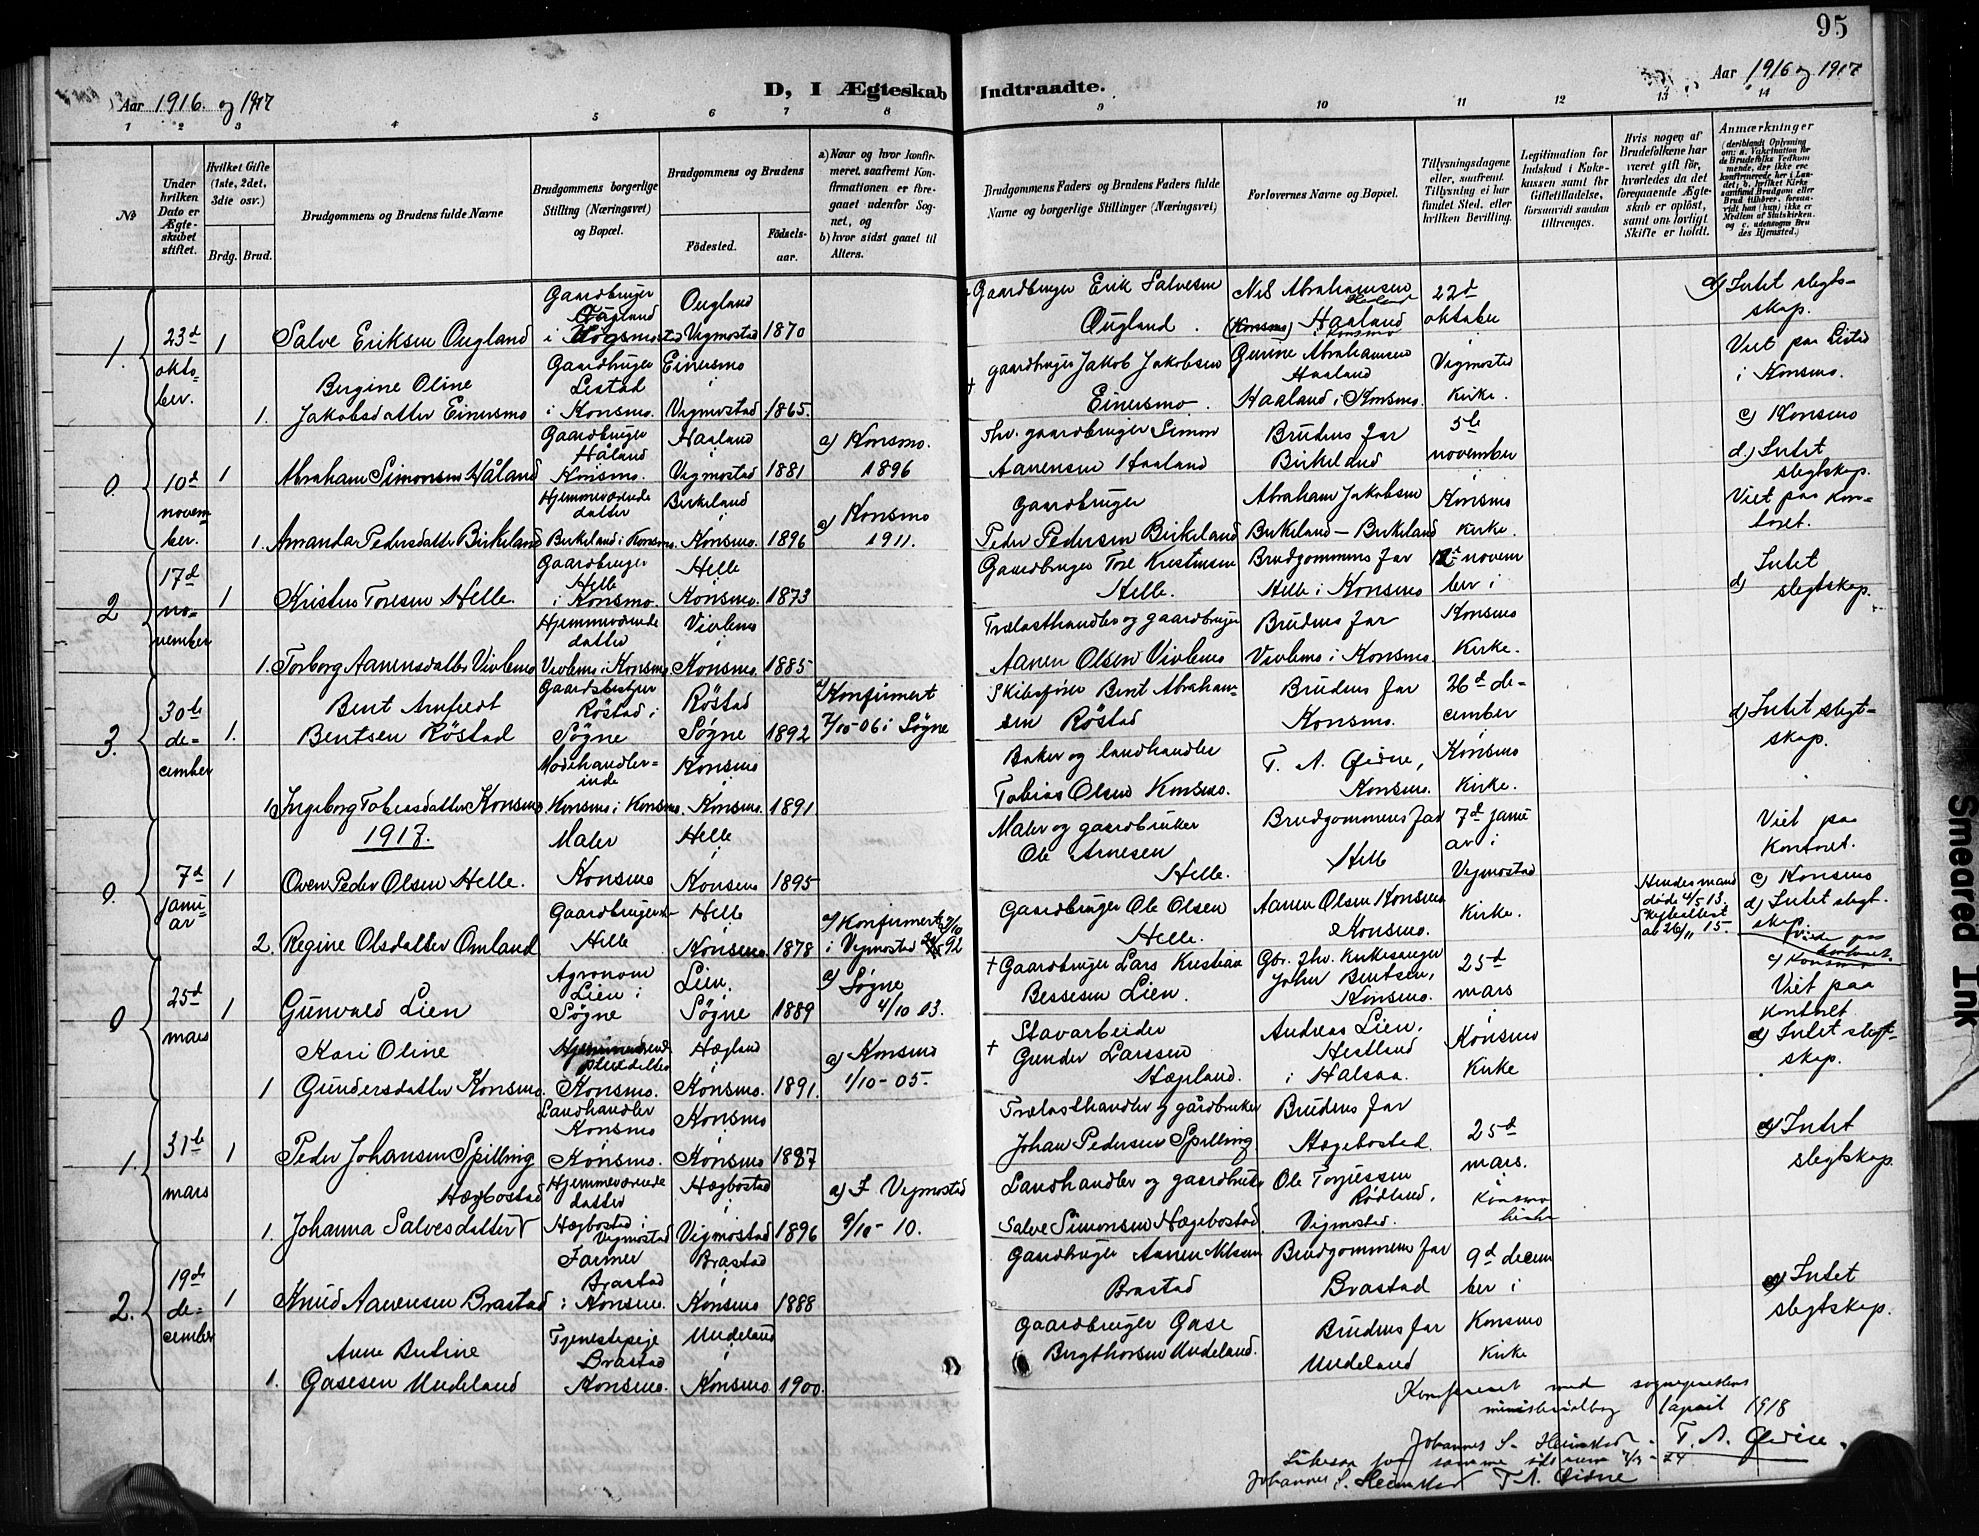 95
Aar 1916 og 1917
D, I Ægteskab Indtraadte.
Aar 1916 og 1917
1 2 3 4 5 6 7 8 9 10 11 12 13 14
No
Under hvilken Dato er Ægteskabet stiftet.
Hvilket Gifte (1ste, 2det, 3die osv.)
Brdg. Brud.
Brudgommens og Brudens fulde Navne
Brudgommens borgerlige Stilling (Næringsvei) og Bopæl.
Brudgommens og Brudens
Fødested.
Fødselsaar.
a) Naar og hvor konfirmeret, saafremt Konfirmationen er foregaaet udenfor Sognet, og
b) hvor sidst gaaet til Alters.
Brudgommens Faders og Brudens Faders fulde Navne og borgerlige Stillinger (Næringsvei)
Forlovernes Navne og Bopæl.
Tillysningsdagene eller, saafremt Tillysning ei har fundet Sted, efter hvilken Bevilling.
Legitimation for Indskud i Enkekassen samt for Giftetilladelse, forsaavidt saadan tiltrænges.
Hvis nogen af Brudefolkene har været gift før, hvorledes da det foregaaende Ægteskab er opløst, samt om lovligt Skifte er holdt.
Anmærkninger
(deriblandt Oplysning om: a. Vakcination for de Brudefolks Vedkommende, der ikke ere konfirmerede her i Landet; b. hvilket Kirkesamfund Brudgom eller Brud tilhører, forsaavidt han (hun) ikke er Medlem af Statskirken, og c. udensogns Brudes Hjemsted.)
1. 23d oktober.
1 Salve Eriksen Ougland
Gaardbruger Ougland
Ougland i Vigmostad 1870
Gaardbruger Erik Salvesen Ougland.
Nils Abrahamsen Haaland i Konsmo
22d oktober i Vigmostad Kirke.
d) Intet slegtskap.
Viet paa Lestad i Konsmo.
c) Konsmo
1. Bergine Oline Jakobsdatter Einersmo
Gaardbruger Lestad i Konsmo.
Einersmo i Vigmostad 1865.
gaardbruger Jakob Jakobsen Einersmo.
Gurine Abrahamsen Haaland
Haaland i Konsmo.
0. 10d november.
1 Abraham Simonsen Håland
Gaardbruger Håland Konsmo.
Haaland i Vigmostad 1881
a) Konsmo. 1896
fhv. gaardbruger Simon Aanensen Haaland
Brudens far Birkeland
5te november i Konsmo Kirke.
d.) Intet slegtskap.
Viet paa kontoret.
1. Amanda Pedersdatter Birkeland
Hjemmeværende datter Birkeland i Konsmo.
Birkeland i Konsmo. 1896
a) Konsmo 1911.
Gaardbruger Peder Pedersen Birkeland
Abraham Jakobsen Birkeland - Birkeland
2 17d november
1 Kristen Toresen Helle.
Gaardbruger Helle i Konsmo.
Helle i Konsmo. 1873
Gaardbruger Tore Kristensen Helle.
Brudgommens far Helle i Konsmo
12d november i Konsmo Kirke.
d) Intet slegtskap.
1. Torborg Aanensdatter Vivlemo
Hjemmeværende datter Vivlemo i Konsmo
Vivlemo i Konsmo. 1885
Trælasthandler og gaardbruger Aanen Olsen Vivlemo
Brudens far Vivlemo i Konsmo.
3. 30te december
1. Bent Anfeldt Bentsen Röstad
Gaardsbestyrer Röstad i Søgne
Röstad i Søgne 1892
a) Konfirmert 7/10-06 i Søgne
Skibsfører Bent Abrahamsen Röstad
Brudens far Konsmo.
26d december i Konsmo Kirke.
d) Intet slegtskap.
1 Ingeborg Tobiasdatter Konsmo
Modehandlerinde Konsmo i Konsmo.
Konsmo i Konsmo. 1891.
Baker og landhandler Tobias Olsen Konsmo.
T. A. Øidne, Konsmo.
1917.
0. 7d januar
1 Oven Peder Olsen Helle.
Maler Konsmo
Helle i Konsmo 1895
Maler og gaardbruker Ole Arnesen Helle.
Brudgommens far Helle
7d januar i Vegmostad Kirke.
Viet paa kontoret.
c) Konsmo
d) Intet slegtskap.
2. Regine Olsdatter Omland
Gaardbruger Helle
Helle i Konsmo. 1878
a) Konfirmert i Vegmostad 92
Gaardbruger Ole Olsen Helle.
Aanen Olsen Konsmo Konsmo.
Hendes mand døde 4/5 13. Skifteattest av 26/11 15.
0 25d mars
1 Gunvald Lien
Agronom Lien i Søgne
Lien. Søgne 1889
a) Søgne 4/10 03.
+ Gaardbruger Lars Kristian Bessesen Lien.
Gbr. fhv. kirkesanger John Bentsen, Konsmo.
25d mars i Konsmo Kirke
c) Konsmo
Viet paa kontoret
d) Intet slegtskap.
1 Kari Oline Gundersdatter Konsmo.
Konsmo.
Hægland i Konsmo. 1891.
a) Konsmo 1/10-05.
+ Stavarbeider Gunder Larssen Hægland.
Andreas Lien, Hestland i Halsaa.
1. 31te mars
1 Peder Johansen Spilling
Landhandler Konsmo i Konsmo.
Konsmo i Konsmo 1887
Trælasthandler og gårdbruker Johan Pedersen Spilling
Brudens far Hægebostad.
25d mars. i Konsmo kirke
d) Intet slegtskap.
1. Johanna Salvesdatter Hægbostad
Hjemmeværende datter Hægbostad i Vegmostad
Hægbostad i Vigmostad 1896
a) I Vegmostad 9/10-10.
Landhandler og gaardbruker Salve Simonsen Hægebostad
Ole Torjussen Rødland, Vigmostad.
2. 19de december
1 Knud Aanensen Brastad
Farmer Brastad i Konsmo.
Brastad i Konsmo 1888
Gaardbruger Aanen Nilsen Brastad
Brudgommens far Brastad
9d december i Konsmo Kirke
d) Intet slegtskap.
1. Anne Bertine Gasesen Undeland
Tjenestepige Brastad Konsmo.
Undeland i Konsmo. 1900.
Gaardbruger Gase Bergthorsen Undeland.
Brudens far Undeland
Konfereret med sogneprestens ministerialbog 1 april 1918
Johannes S. Heimstad. T. A. Øidne.
Johannes S. Heimstad T. A. Øidne
Smeared Ink